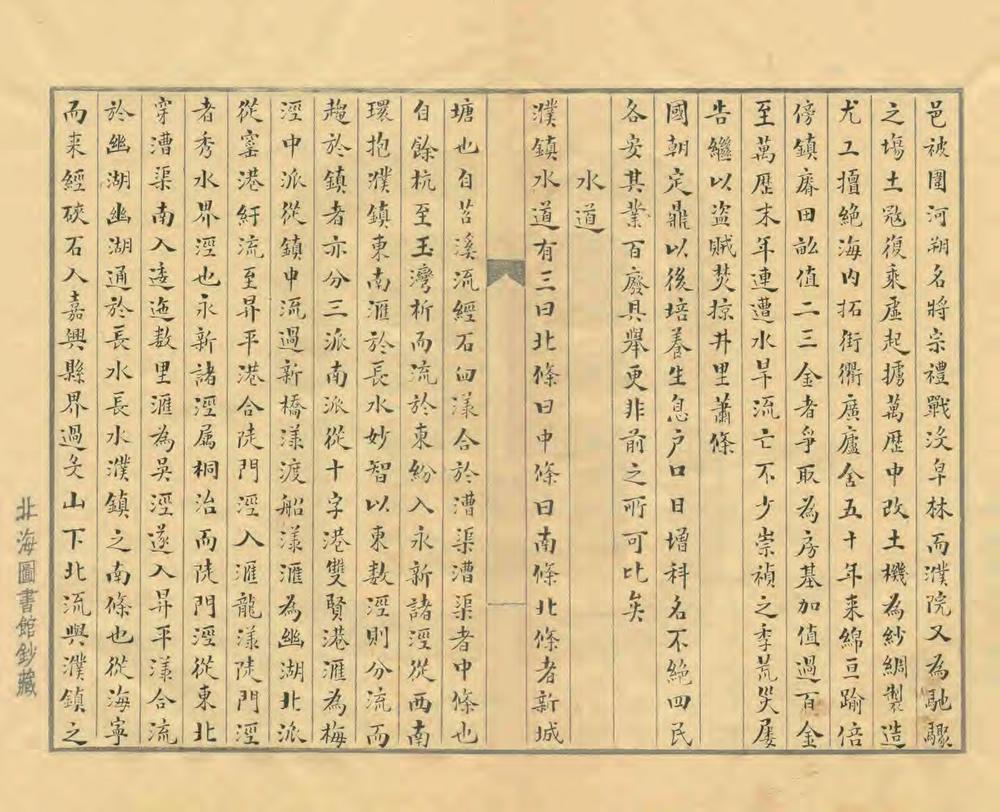 邑被圍河朔名將宗禮戰沒皁林而濮院又為馳驟
之塲土冦復乘虛起擄萬歷中改土機為紗綢製造
尤工擅絕海内拓街衢廣廬舍五十年来綿亘踰倍
傍鎮廨田畝值二三金者爭取為房基加值過百金
至萬歷末年連遭水旱流亡不少崇禎之季荒災屢
告繼以盜賊焚掠井里蕭條
國朝定鼎以後培養生息户口日增科名不絕四民
各安其業百廢具舉更非前之所可比矣
水道
濮鎮水道有三曰北條曰中條曰南條北條者新城
塘也自苕溪流經石㘝漾合於漕渠漕渠者中條也
自餘杭至玉灣析而流於東紛入永新諸涇從西南
環抱濮鎮東南滙於長水妙智以東数涇則分流而
趨於鎮者亦分三派南派從十字港雙賢港滙為梅
涇中派從鎮中流過新橋漾渡船漾滙為幽湖北派
從窰港紆流至昇平港合陡門涇入滙龍漾陡門涇
者秀水界涇也永新諸涇属桐治而陡門涇從東北
穿漕渠南入逶迤数里滙為吳涇遂入昇平漾合流
於幽湖幽湖通於長水長水濮鎮之南條也從海寧
而来經硤石入嘉興縣界過殳山下北流與濮鎮之
北海圖書館鈔藏